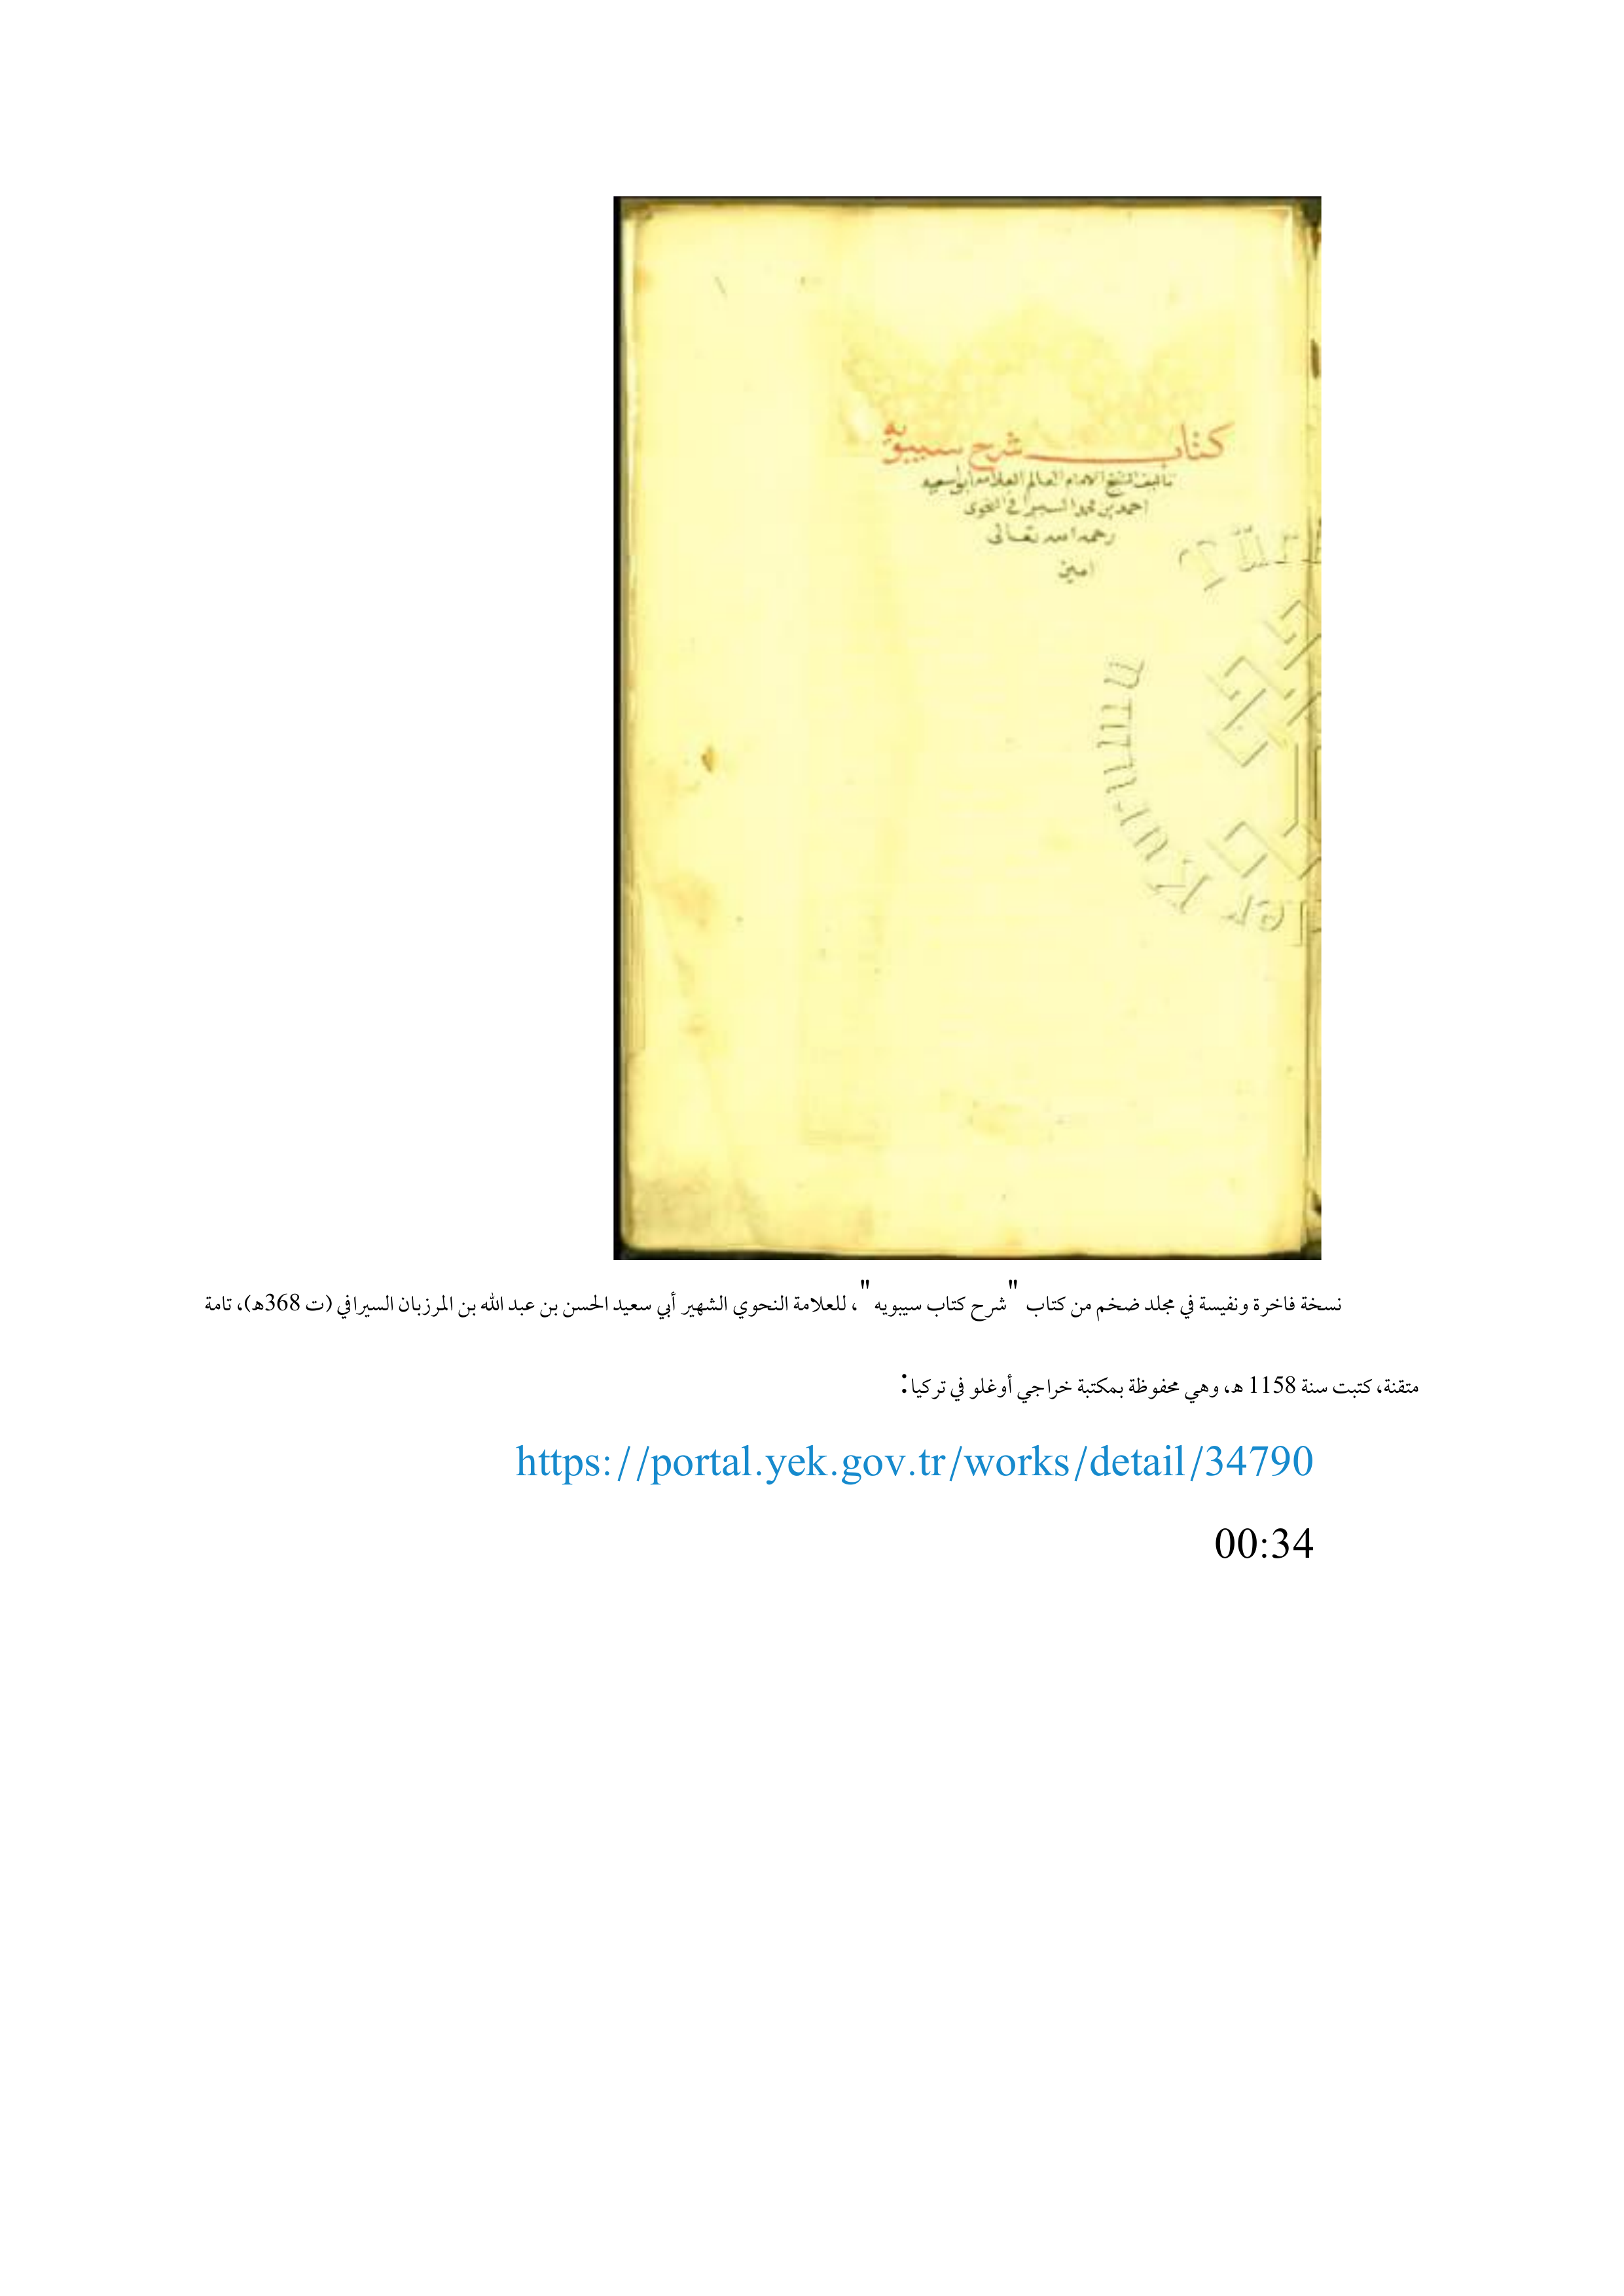 كتاب شرح سيبويه
تأليف الشيخ الامام العالم العلامه ابو سعيد
احمد بن محمد السيرافي النحوى
رحمه الله تعالى
امين
نسخة فاخرة ونفيسة في مجلد ضخم من كتاب "شرح كتاب سيبويه"، للعلامة النحوي الشهير أبي سعيد الحسن بن عبد الله بن المرزبان السيرافي (ت 368ه)، تامة
متقنة، كتبت سنة 1158 ه، وهي محفوظة بمكتبة خراجي أوغلو في تركيا:
https://portal.yek.gov.tr/works/detail/34790
00:34